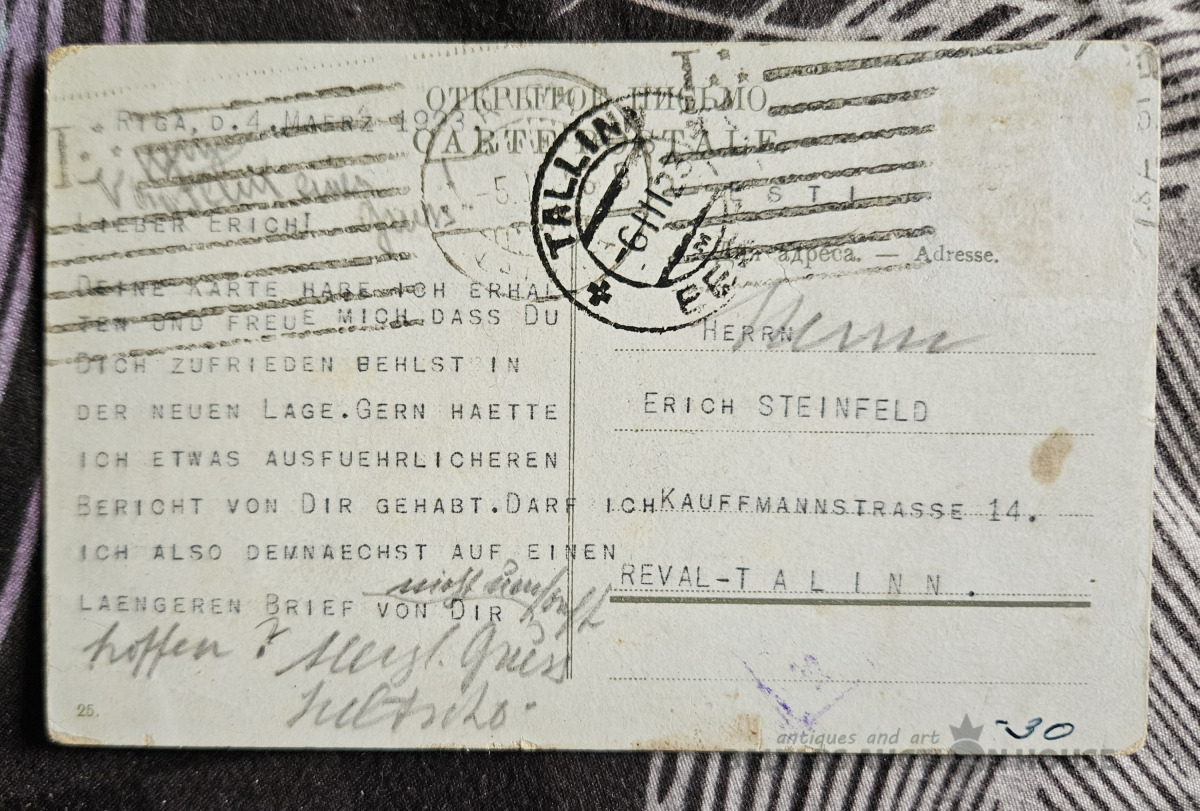 ОТКРЫТОЕ ПИСЬМО
CARTE POSTALE
RIGA, D. 4. MAERZ 1923.
LIEBER ERICH!
DEINE KARTE HABE ICH ERHAL
TEN UND FREUE MICH DASS DU
DICH ZUFRIEDEN BEHLST IN
DER NEUEN LAGE.GERN HAETTE
ICH ETWAS AUSFUEHRLICHEREN
BERICHT VON DIR GEHABT.DARF ICH
ICH ALSO DEMNAECHST AUF EINEN
nicht umsonst
LAENGEREN BRIEF VON DIR
hoffen? Herzl. Gruss
25.
TALLINN
-6III23
EESTI
адреса. — Adresse.
HERRN
Herrn
ERICH STEINFELD
KAUFFMANNSTRASSE 14.
REVAL-TALINN.
-30
antiques and art
AUCTION HOUSE